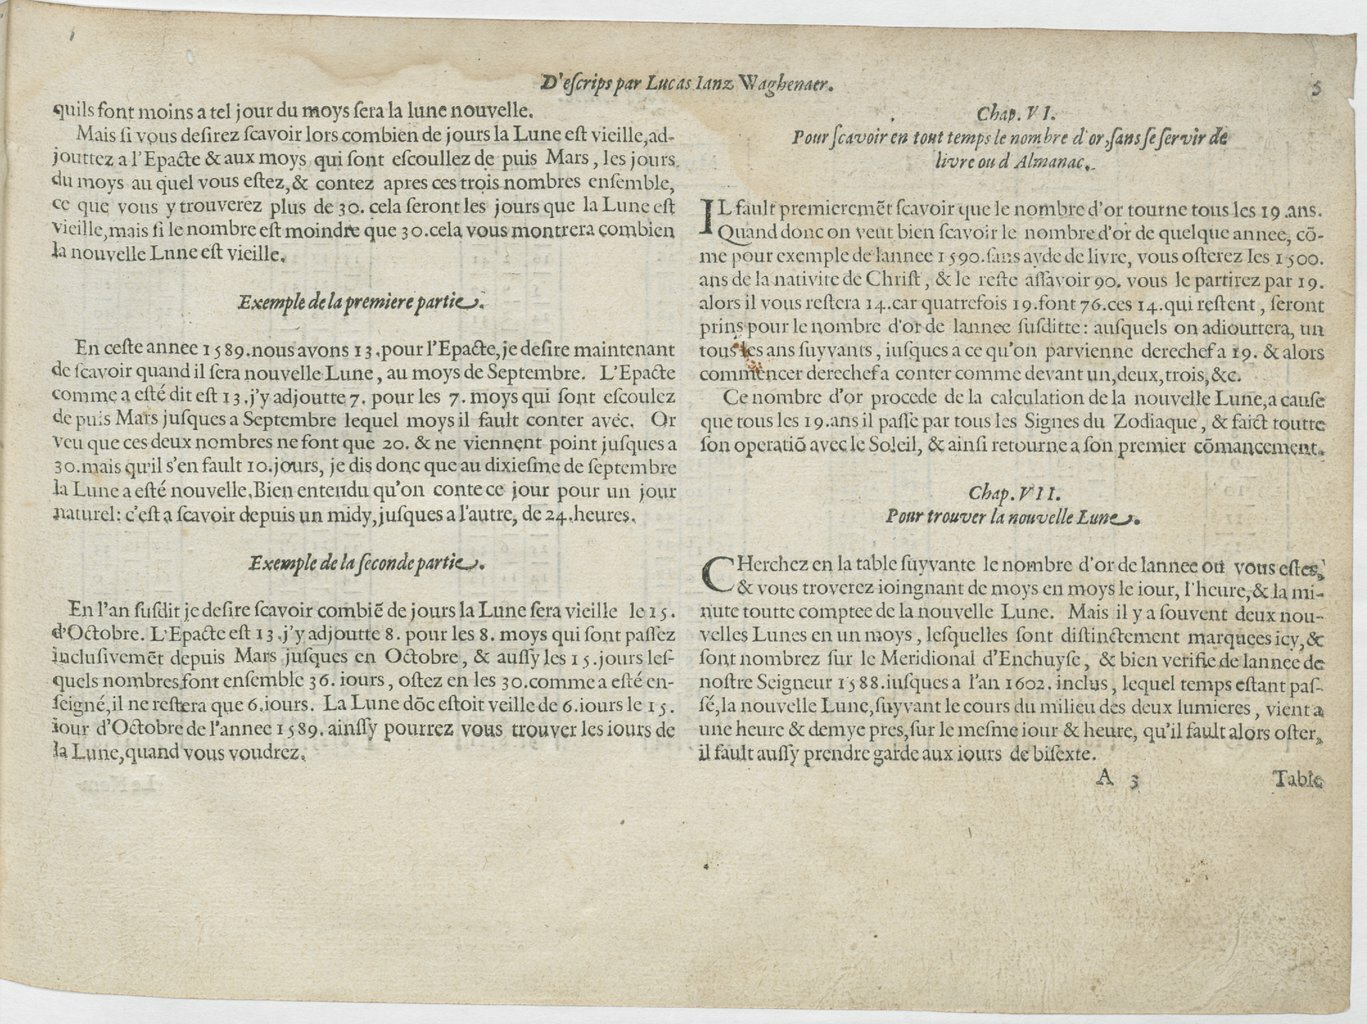 D'eſcrips par Lucas Ianz Waghenaer.
5
quils ſont moins a tel jour du moys ſera la lune nouvelle.
Mais ſi vous deſirez ſcavoir lors combien de jours la Lune eſt vieille,ad-
jouttez a l'Epacte & aux moys qui ſont eſcoullez de puis Mars, les jours
du moys au quel vous eſtez,& contez apres ces trois nombres enſemble,
ce que vous y trouverez plus de 30. cela ſeront les jours que la Lune eſt
vieille,mais ſi le nombre eſt moindre que 30.cela vous montrera combien
la nouvelle Lnne eſt vieille.
Exemple de la premiere partie.
En ceſte annee 1589.nous avons 13.pour l'Epacte,je deſire maintenant
de ſcavoir quand il ſera nouvelle Lune, au moys de Septembre. L'Epacte
comme a eſté dit eſt 13.j'y adjoutte 7. pour les 7. moys qui ſont eſcoulez
de puis Mars juſques a Septembre lequel moys il fault conter avec. Or
veu que ces deux nombres ne font que 20. & ne viennent point juſques a
30.mais qu'il s'en fault 10.jours, je dis donc que au dixieſme de ſeptembre
la Lune a eſté nouvelle.Bien entendu qu'on conte ce jour pour un jour
naturel: c'eſt a ſcavoir depuis un midy,juſques a l'autre, de 24.heures.
Exemple de la ſeconde partie.
En l'an ſuſdit je deſire ſcavoir combiē de jours la Lune ſera vieille le 15.
d'Octobre. L'Epacte eſt 13.j'y adjoutte 8. pour les 8. moys qui ſont paſſez
incluſivemēt depuis Mars juſques en Octobre, & auſſy les 15.jours leſ-
quels nombres font enſemble 36. iours, oſtez en les 30.comme a eſté en-
ſeigné,il ne reſtera que 6.iours. La Lune dōc eſtoit veille de 6.iours le 15.
iour d'Octobre de l'annee 1589. ainſſy pourrez vous trouver les iours de
la Lune,quand vous voudrez.
Chap. VI.
Pour ſcavoir en tout temps le nombre d'or,ſans ſe ſervir de
livre ou d Almanac.
IL fault premieremēt ſcavoir que le nombre d'or tourne tous les 19.ans.
Quand donc on veut bien ſcavoir le nombre d'or de quelque annee, cō-
me pour exemple de lannee 1590.ſans ayde de livre, vous oſterez les 1500.
ans de la nativite de Chriſt, & le reſte aſſavoir 90. vous le partirez par 19.
alors il vous reſtera 14.car quatrefois 19.font 76.ces 14.qui reſtent, ſeront
prins pour le nombre d'or de lannee ſuſditte: auſquels on adiouttera, un
tous les ans ſuyvants, iuſques a ce qu'on parvienne derechef a 19. & alors
commencer derechef a conter comme devant un,deux,trois,&c.
Ce nombre d'or procede de la calculation de la nouvelle Lune,a cauſe
que tous les 19.ans il paſſe par tous les Signes du Zodiaque, & faict toutte
ſon operatiō avec le Soleil, & ainſi retourne a ſon premier cōmancement.
Chap. VII.
Pour trouver la nouvelle Lune.
CHerchez en la table ſuyvante le nombre d'or de lannee ou vous eſtes,
& vous troverez ioingnant de moys en moys le iour, l'heure,& la mi-
nute toutte comptee de la nouvelle Lune. Mais il y a ſouvent deux nou-
velles Lunes en un moys, leſquelles ſont diſtinctement marquees icy,&
ſont nombrez sur le Meridional d'Enchuyſe, & bien verifie de lannee de
noſtre Seigneur 1588.iuſques a l'an 1602. inclus, lequel temps eſtant paſ-
ſé,la nouvelle Lune,ſuyvant le cours du milieu des deux lumieres, vient a
une heure & demye pres,ſur le meſme iour & heure, qu'il fault alors oſter,
il fault auſſy prendre garde aux iours de biſexte.
A 3
Table